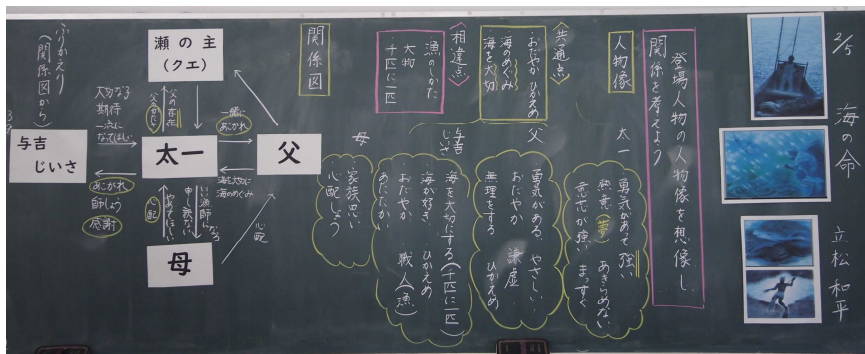 2/5
海の命
立松 和平
登場人物の人物像を想像し
関係を考えよう
人物像
太一
勇気があって強い
熱意 夢 あきらめない
意志が強い まっすぐ
父
・勇気がある やさしい
おだやか 謙虚
無理をする ひかえめ
与吉
じいさ
海を大切にする(千匹に一匹)
海が好き ひかえめ
おだやか 職人(漁)
あたたかい
母
・家族思い
心配しょう
共通点
・おだやか ひかえめ
海のめぐみ
海を大切
相違点
・漁のしかた
大物
・千匹に一匹
関係図
瀬の主
(クエ)
太一
父
母
与吉
じいさ
父の存在
父のかたき
一緒に
あこがれ
海を大切に
海のめぐみ
心配
いい漁師になろう
申し訳ない
心配
やめてほしい
大切なる
期待
一流に
なってほしい
あこがれ
師しょう
感謝
ふりかえり
(関係図から)